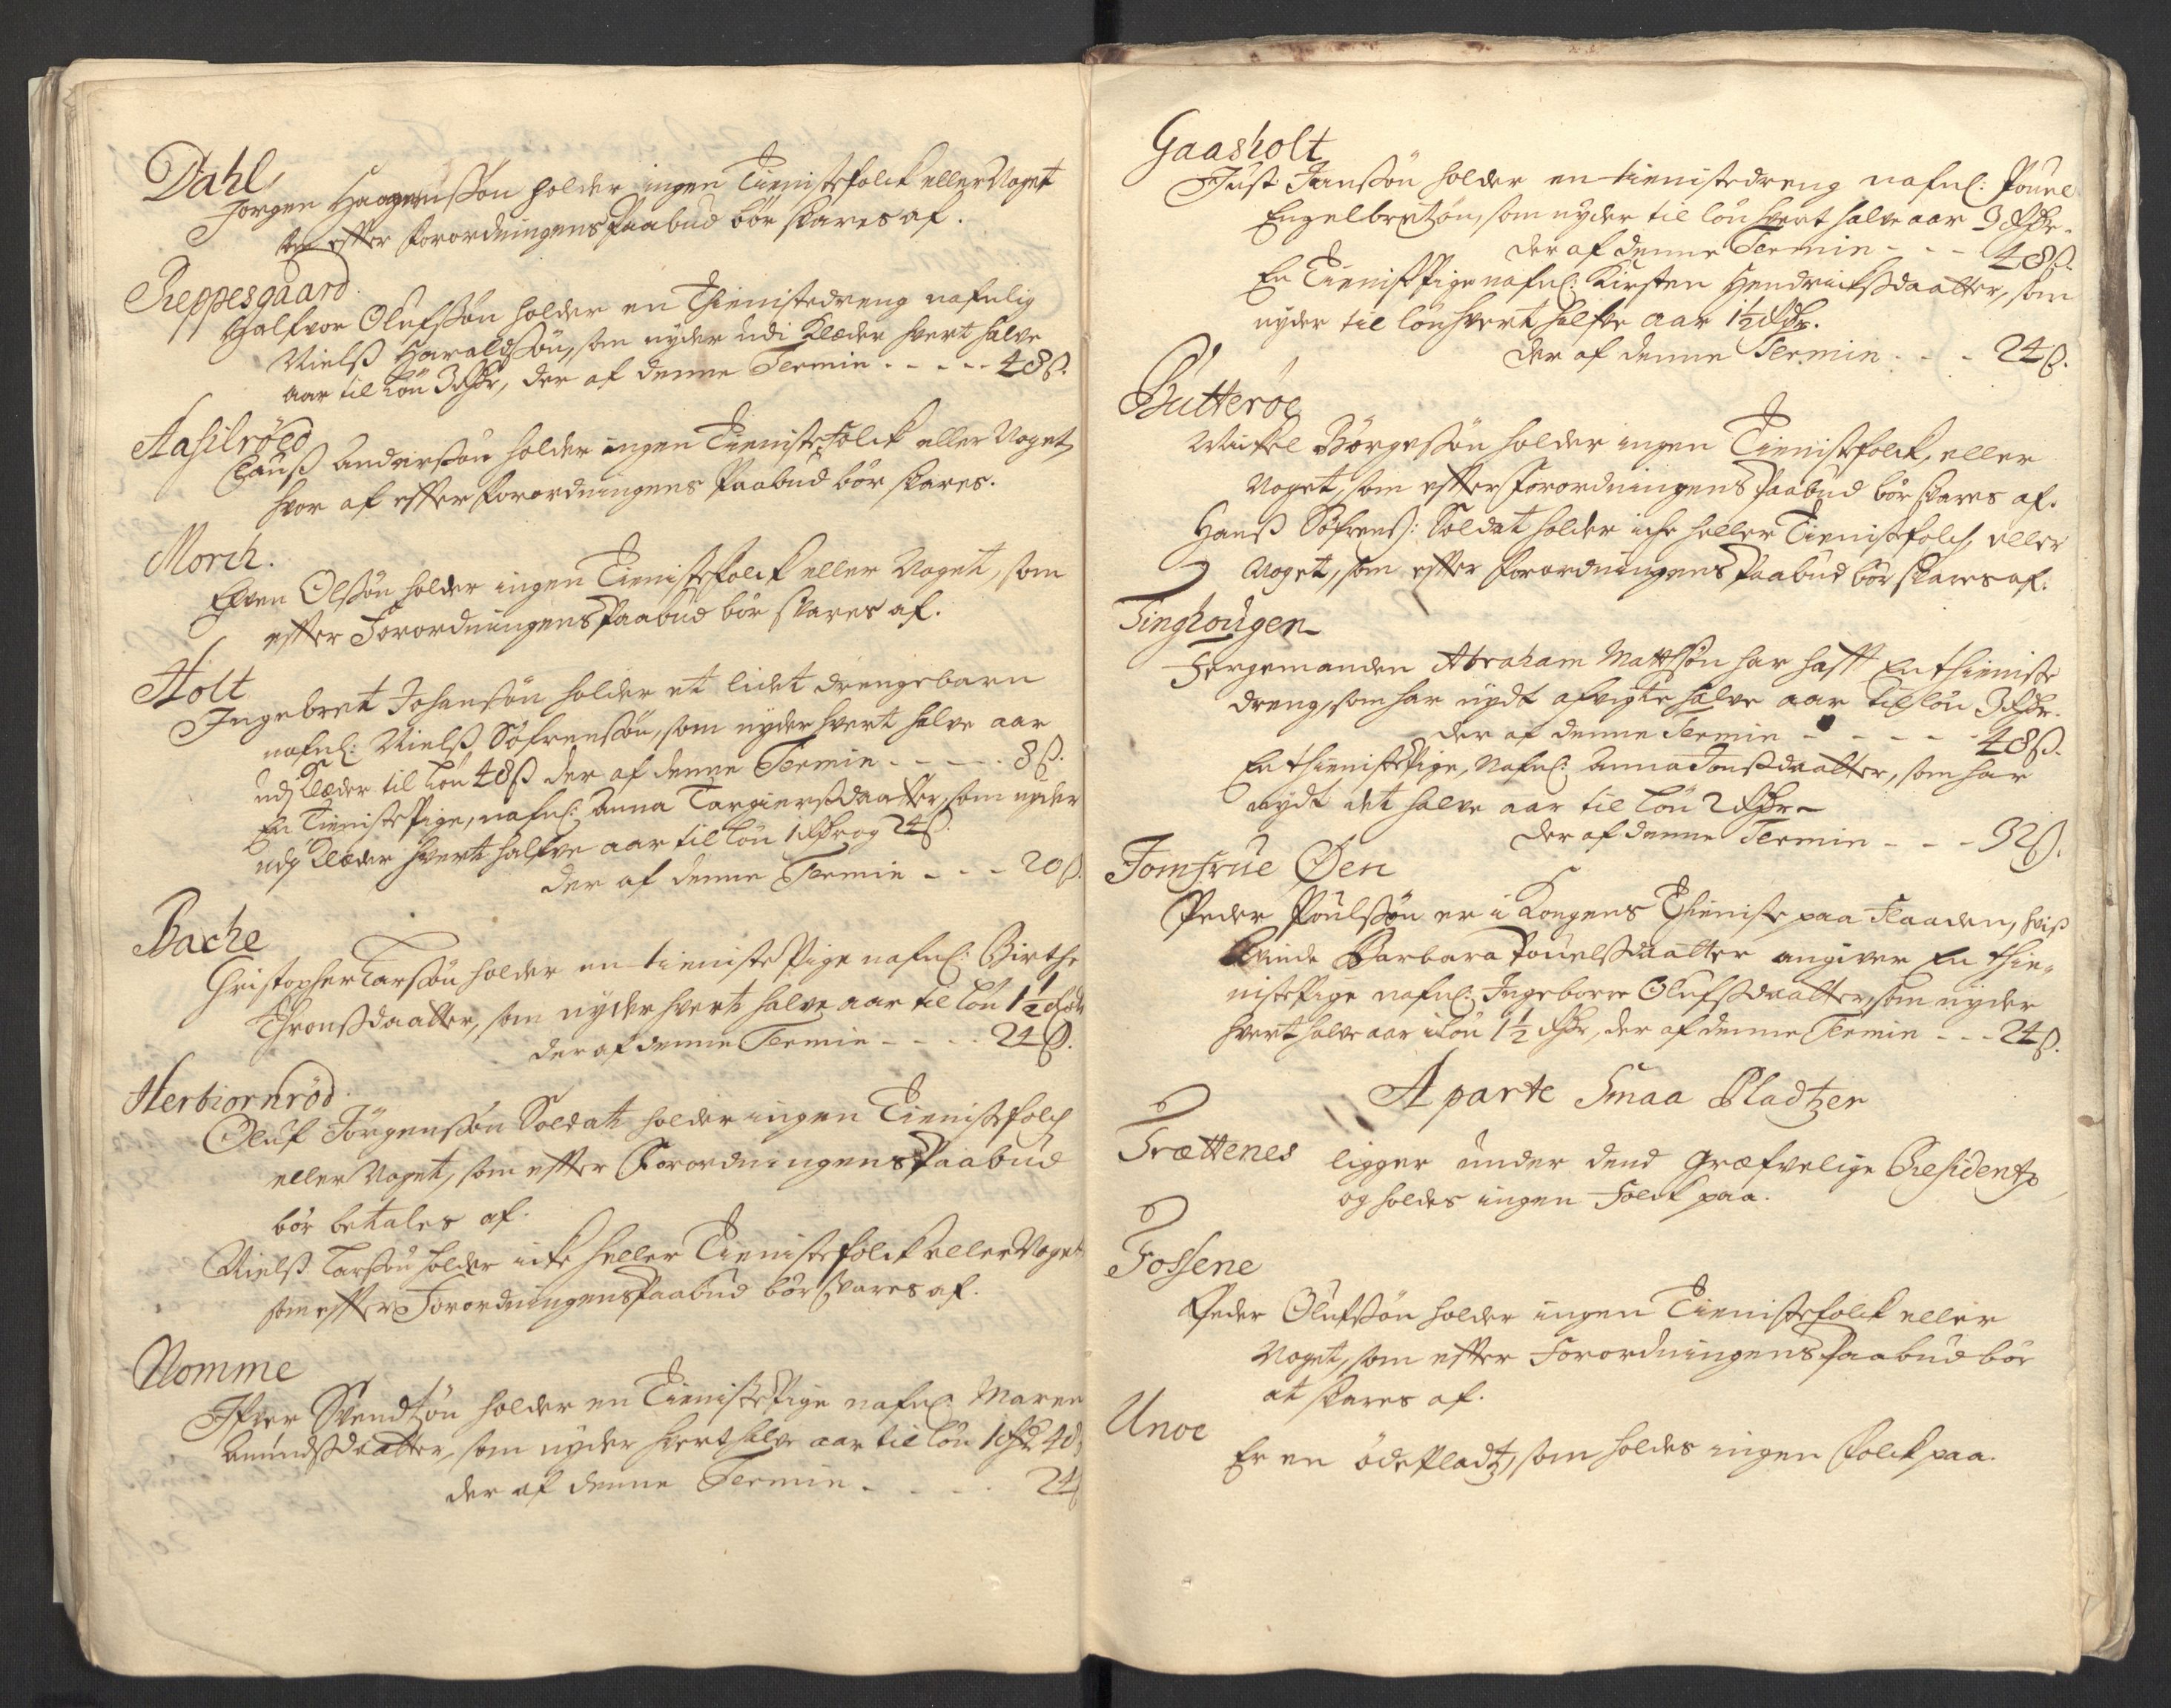 Dahl
Jørgen Haagensøn holder ingen Tienistefolck eller Noget
som effter Forordningens Paabud bør svares af.
Reppesgaard
Halfvor Olufssøn holder en Thienistedreng nafnlig
Nielß Haraldssøn, som nyder udi Klæder hvert halve
aar til Løn 3 Rdr, der af denne Termin - - - - - 48 ß.
Aasilrøed
Clauß Anderssøn holder ingen Tieniste Folck eller Noget
hvor af effter Forordningens Paabud bør svares.
Morch.
Efven Olssøn holder ingen Tienistefolck eller Noget, som
effter Forordningens Paabud bør svares af.
Holt
Ingebret Johanssøn holder et lidet drengebarn
nafnl: Nielß Søfrenssøn, som nyder hvert halve aar
udj Klæder til Løn 48 ß der af denne Termin - - - - 8 ß.
En Tieniste Pige, nafnl: Anna Targierßdaatter, som nyder
udj Klæder hvert halfve aar til Løn 1 Rdr og 24 ß.
der af denne Termin - - - 20 ß.
Bache
Christopher Larssøn holder en tieniste Pige nafnl: Birthe
Thronßdaatter, som nyder hvert halve aar til Løn 1½ Rdr
der af denne Termin - - - - 24 ß.
Herbiørnrød
Oluf Jørgenssøn Soldat holder ingen Tienistefolch
eller Noget, som effter Forordningens Paabud
bør betales af.
Nielß Larssøn holder icke heller Tienistefolck eller Noget
som effter Forordningens Paabud bør svares af.
Nomme
Ifver Svendtzøn holder en Tieniste Pige nafnl: Maren
Amundßdaatter, som nyder hvert halve aar til Løn 1 Rdr 48 ß
der af denne Termin - - - - 24
Gaasholt
Just Jenssøn holder en tienistedreng nafnl: Pouel
Engelbretzøn, som nyder til løn hvert halve aar 3 Rdr.
der af denne Termin - - - 48 ß.
En Tienist Pige nafnl: Kirsten Hendrichsdaatter, som
nyder til løn hvert halfve aar 1½ Rdr.
der af denne Termin - - - 24 ß.
Butterøe
Mickel Børgessøn holder ingen Tienistefolck, eller
Noget, som effter Forordningens Paabud bør svares af.
Hanß Søfrenß: Soldat holder iche heller Tienistefolch eller
Noget, som effter Forordningens Paabud bør svares af.
Tinghougen
Fergemanden Abraham Mattssøn har hafft En thieniste
dreng, som har nydt afvigte halve aar til løn 3 Rdr.
der af denne Termin - - - - - 48 ß.
En thieniste Pige, Nafnl: Anna Jonßdaatter, som har
nydt det halve aar til Løn 2 Rdr
der af denne Termin - - - 32 ß.
Jomfrue Øen
Peder Poulssøn er i Kongens Thieniste paa Flaaden, hviß
Qvinde Barbara Pouelßdaatter angiver En thie-
niste Pige nafnl: Ingeborre Olufßdaatter, som nyder
hvert halve aar i løn 1½ Rdr, der af denne Termin - - - 24 ß.
Aparte Smaa Pladtzer
Trættenes
ligger under dend Græfvelige Residentz
og holdes ingen Folck paa.
Fossene
Peder Olufssøn holder ingen Tienistefolck eller
Noget, som effter Forordningens Paabud bør
at svares af.
Unoe
Er en øde Pladtz, som holdes ingen Folck paa.